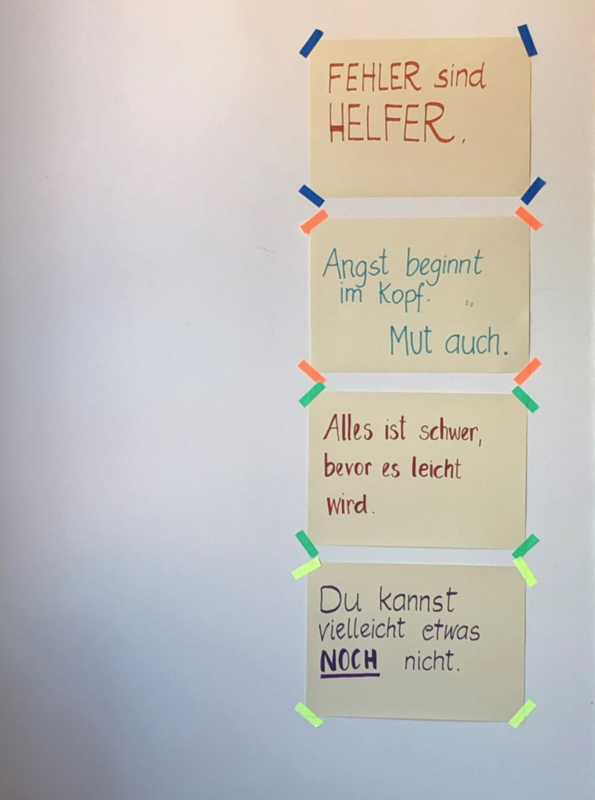 FEHLER sind
HELFER.
Angst beginnt
im Kopf.
Mut auch.
Alles ist schwer,
bevor es leicht
wird.
Du kannst
vielleicht etwas
NOCH nicht.